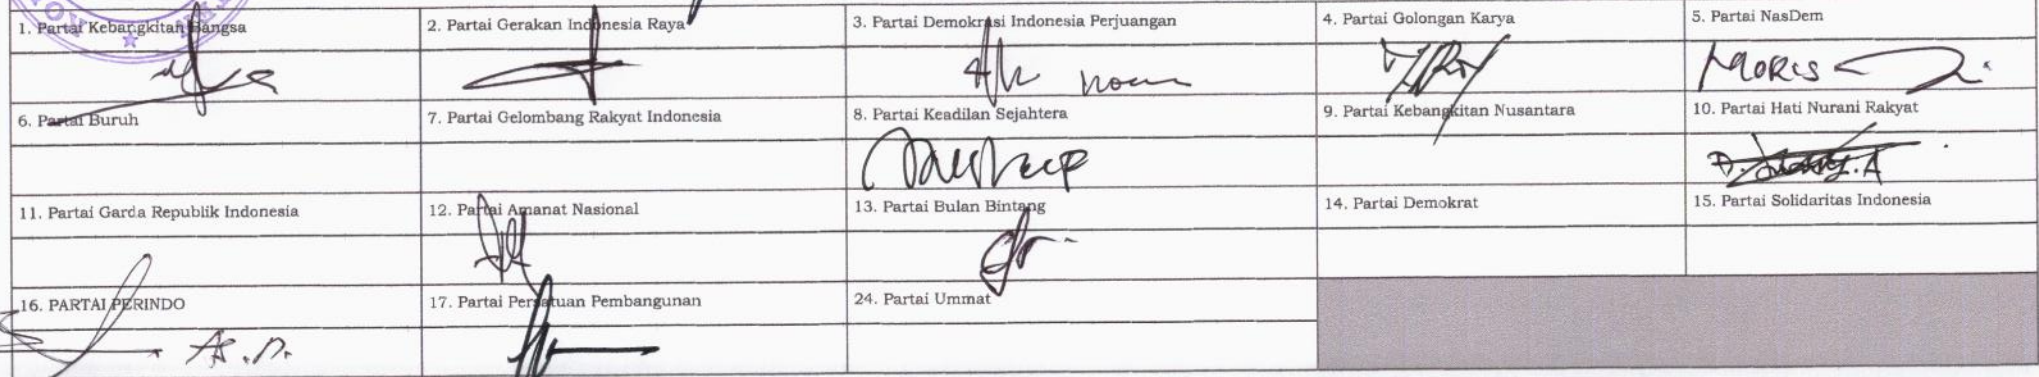 1. Partai Kebangkitan Bangsa
2. Partai Gerakan Indonesia Raya
3. Partai Demokrasi Indonesia Perjuangan
4. Partai Golongan Karya
5. Partai NasDem
MORIS
6. Partai Buruh
7. Partai Gelombang Rakyat Indonesia
8. Partai Keadilan Sejahtera
9. Partai Kebangkitan Nusantara
10. Partai Hati Nurani Rakyat
11. Partai Garda Republik Indonesia
12. Partai Amanat Nasional
13. Partai Bulan Bintang
14. Partai Demokrat
15. Partai Solidaritas Indonesia
16. PARTAI PERINDO
17. Partai Persatuan Pembangunan
24. Partai Ummat